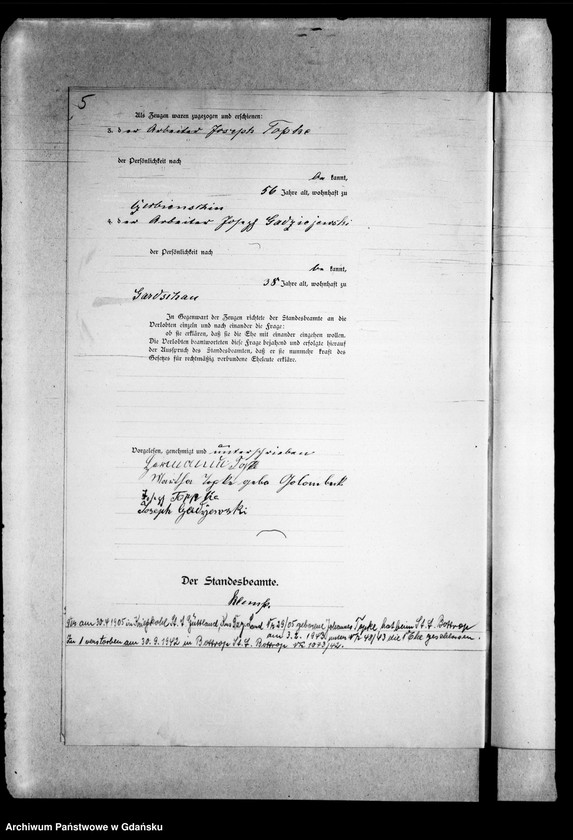 5
Als Zeugen waren zugezogen und erschienen:
3. der Arbeiter Joseph Topke
der Persönlichkeit nach
be kannt,
56 Jahre alt, wohnhaft zu
4. der Arbeiter Josef
der Persönlichkeit nach
be kannt,
38 Jahre alt, wohnhaft zu
Gardschau
In Gegenwart der Zeugen richtete der Standesbeamte an die
Verlobten einzeln und nach einander die Frage:
ob sie erklären, daß sie die Ehe mit einander eingehen wollen.
Die Verlobten beantworteten diese Frage bejahend und erfolgte hierauf
der Ausspruch des Standesbeamten, daß er sie nunmehr kraft des
Gesetzes für rechtmäßig verbundene Eheleute erkläre.
Vorgelesen, genehmigt und unterschrieben
Martha Topke geb Golombek
Josef Toppke
Joseph
Der Standesbeamte.
Der am 30.4.1905 in St. A. Güttland, 29/05 geborene Johannes Topke hat beim St. A. Bottrop
am 3.2.1943 unter Nr 40/43 die Ehe geschlossen.
Zu 1 verstorben am 30.9.1942 in Bottrop St. A. Bottrop Nr 1043/42.
Archiwum Państwowe w Gdańsku